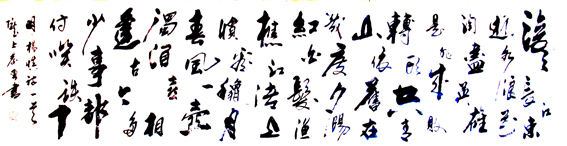 滾滾長江東
逝水浪花
淘盡英雄
是非成敗
轉頭空青
山依舊在
幾度夕陽
紅白髮漁
樵江渚上
慣看秋月
春風一壺
濁酒喜相
逢古今多
少事都
付笑談中
楊慎詞一首
書